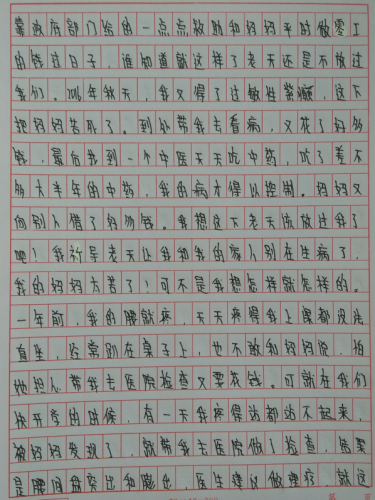 靠政府部门给的一点点救助和妈妈平时做零工
的钱过日子，谁知道就这样了老天还是不放过
我们。2016年秋天，我又得了过敏性紫癜，这下
把妈妈苦死了。到处带我去看病，又花了好多
钱，最后找到一个中医天天吃中药，吃了差不
多大半年的中药，我的病才得以控制。妈妈又
向别人借了好多钱。我想这下老天应放过我了
吧！我祈呈老天让我和我的家人别在生病了，
我的妈妈太苦了！可不是我想怎样就怎样的。
一年前，我的腰就疼，天天疼得我上课都没法
直坐，经常趴在桌子上，也不敢和妈妈说，怕
她担心带我去医院检查又要花钱。可就在我们
快开学的时候，有一天我疼得站都站不起来，
被妈妈发现了，就带我去医院做了检查，结果
是腰间盘突出和膨出，医生建议做理疗，就这